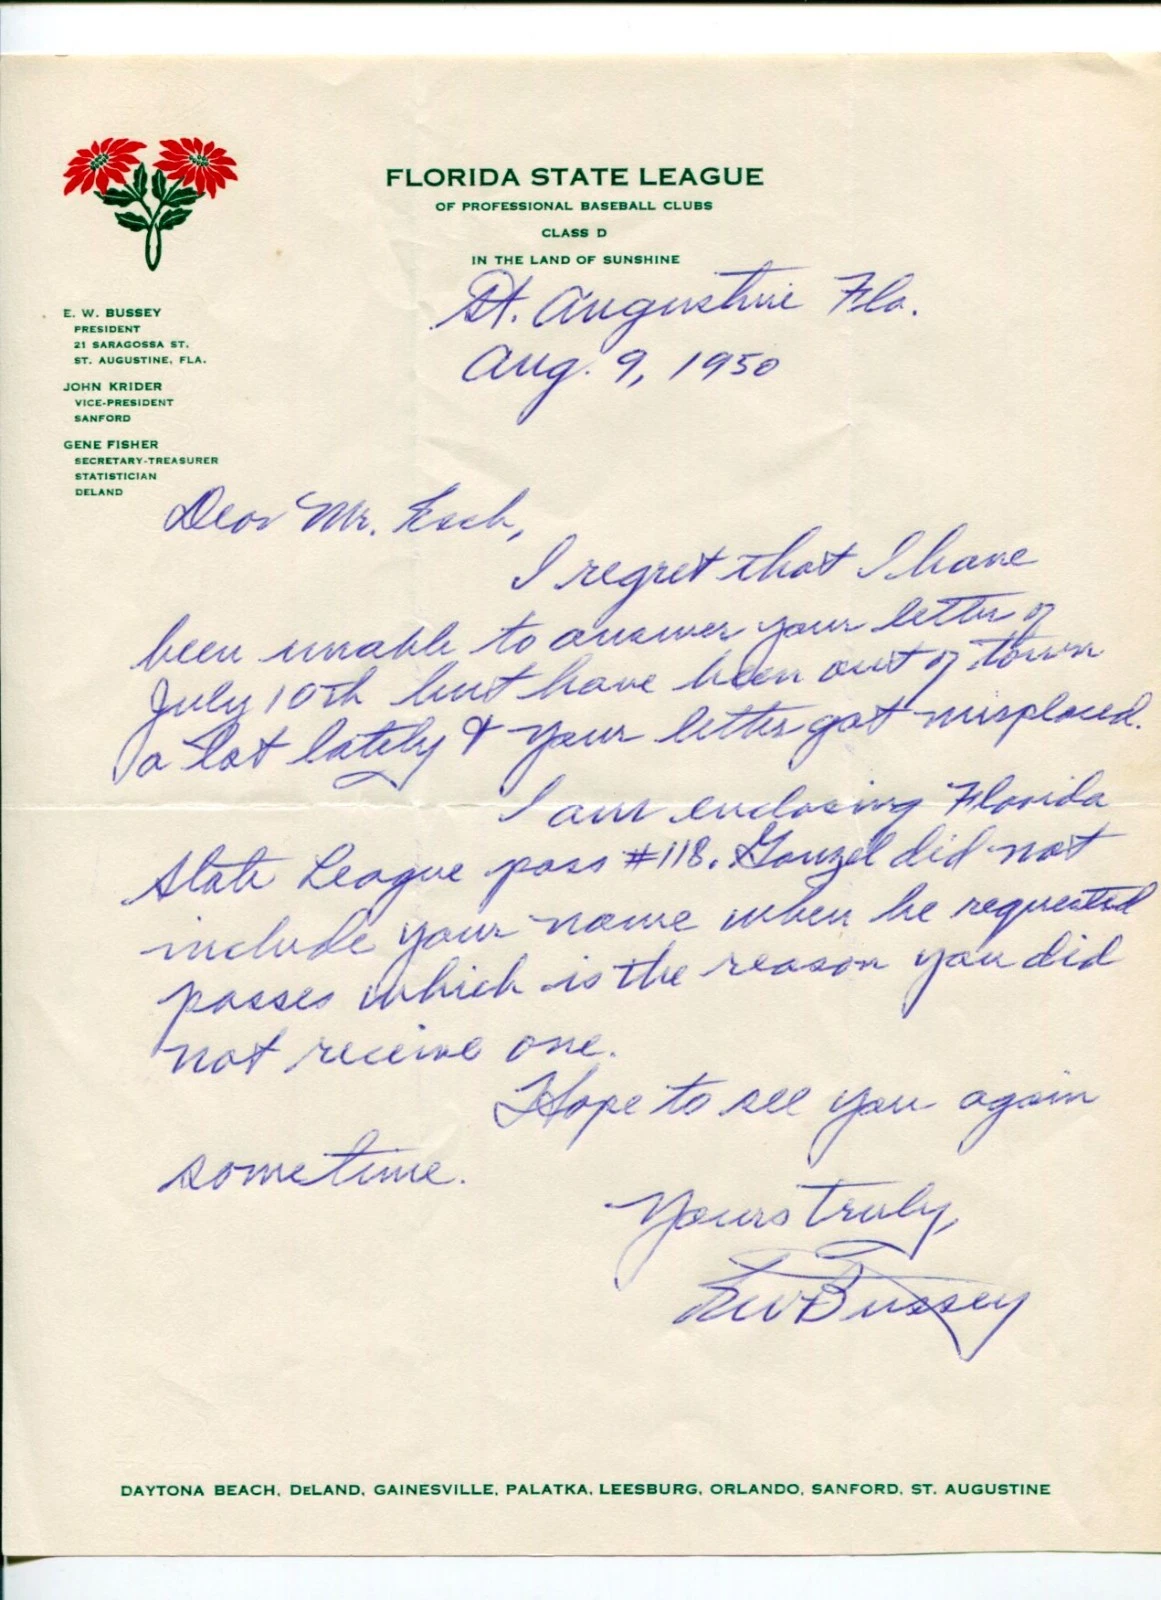 FLORIDA STATE LEAGUE
OF PROFESSIONAL BASEBALL CLUBS
CLASS D
IN THE LAND OF SUNSHINE
E. W. BUSSEY
PRESIDENT
21 SARAGOSSA ST.
ST. AUGUSTINE, FLA.
JOHN KRIDER
VICE-PRESIDENT
SANFORD
GENE FISHER
SECRETARY-TREASURER
STATISTICIAN
DELAND
St. Augustine Fla.
Aug. 9, 1950
Dear Mr. Esch,
I regret that I have
been unable to answer your letter of
July 10th but have been out of town
a lot lately & your letter got misplaced.
I am enclosing Florida
State League pass #118. did not
include your name when he requested
passes which is the reason you did
not receive one.
Hope to see you again
sometime.
Yours truly,
EW Bussey
DAYTONA BEACH, DeLAND, GAINESVILLE, PALATKA, LEESBURG, ORLANDO, SANFORD, ST. AUGUSTINE